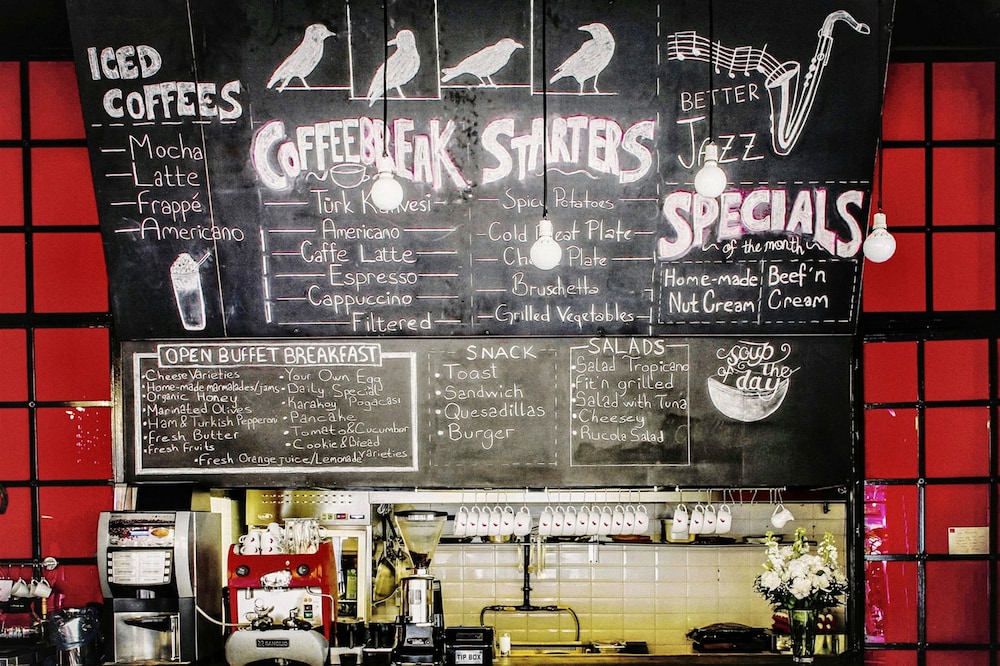 ICED
COFFEES
Mocha
Latte
Frappé
Americano
COFFEEBREAK
Türk Kahvesi
Americano
Caffe Latte
Espresso
Cappuccino
Filtered
STARTERS
Spicy Potatoes
Cold Meat Plate
Plate
Bruschetta
Grilled Vegetables
BETTER
JAZZ
SPECIALS
of the month
Home-made
Nut Cream
Beef'n
Cream
OPEN BUFFET BREAKFAST
•Cheese Varieties
•Home-made marmalades/jams
•Organic Honey
•Marinated Olives
•Ham & Turkish Pepperoni
•Fresh Butter
•Fresh Fruits
•Your Own Egg
•Daily Special
•Karaköy Pogacasi
•Pancake
•Tomato&Cucumber
•Cookie & Bread
varieties
•Fresh Orange juice/Lemonade
SNACK
•Toast
•Sandwich
•Quesadillas
•Burger
SALADS
•Salad Tropicano
•Fit'n grilled
•Salad with Tuna
•Cheesey
•Rucola Salad
Soup
OF THE
day
RANCILIO
TIP BOX